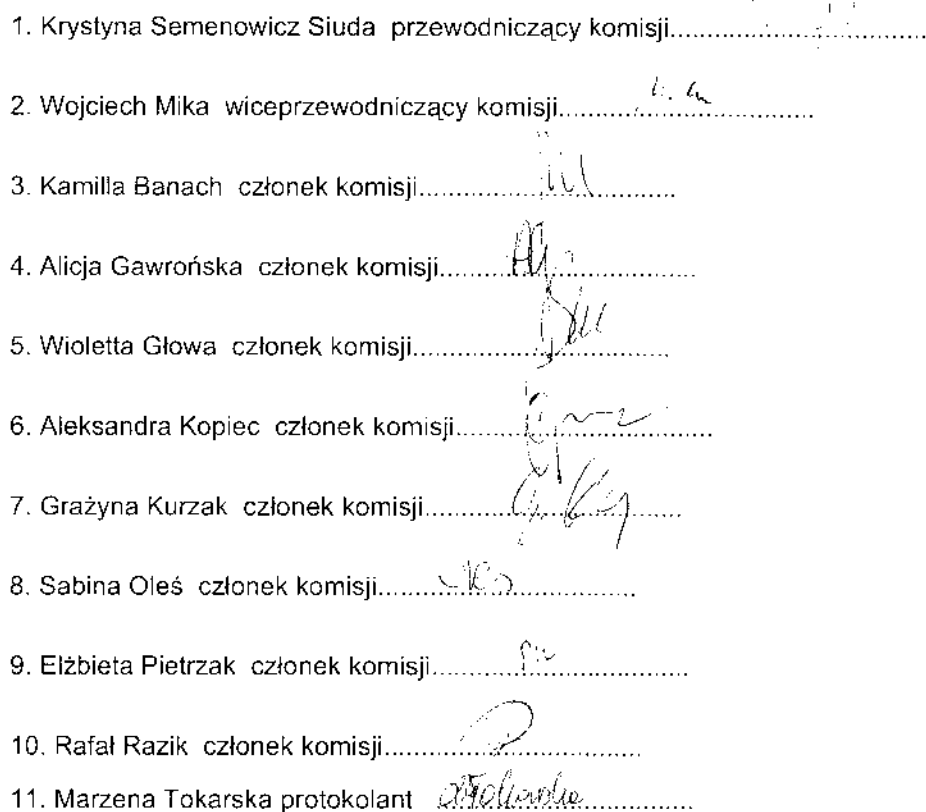 1. Krystyna Semenowicz Siuda przewodniczący komisji
2. Wojciech Mika wiceprzewodniczący komisji
3. Kamilla Banach członek komisji
4. Alicja Gawrońska członek komisji
5. Wioletta Głowa członek komisji
6. Aleksandra Kopiec członek komisji
7. Grażyna Kurzak członek komisji
8. Sabina Oleś członek komisji
9. Elżbieta Pietrzak członek komisji
10. Rafał Razik członek komisji
11. Marzena Tokarska protokolant